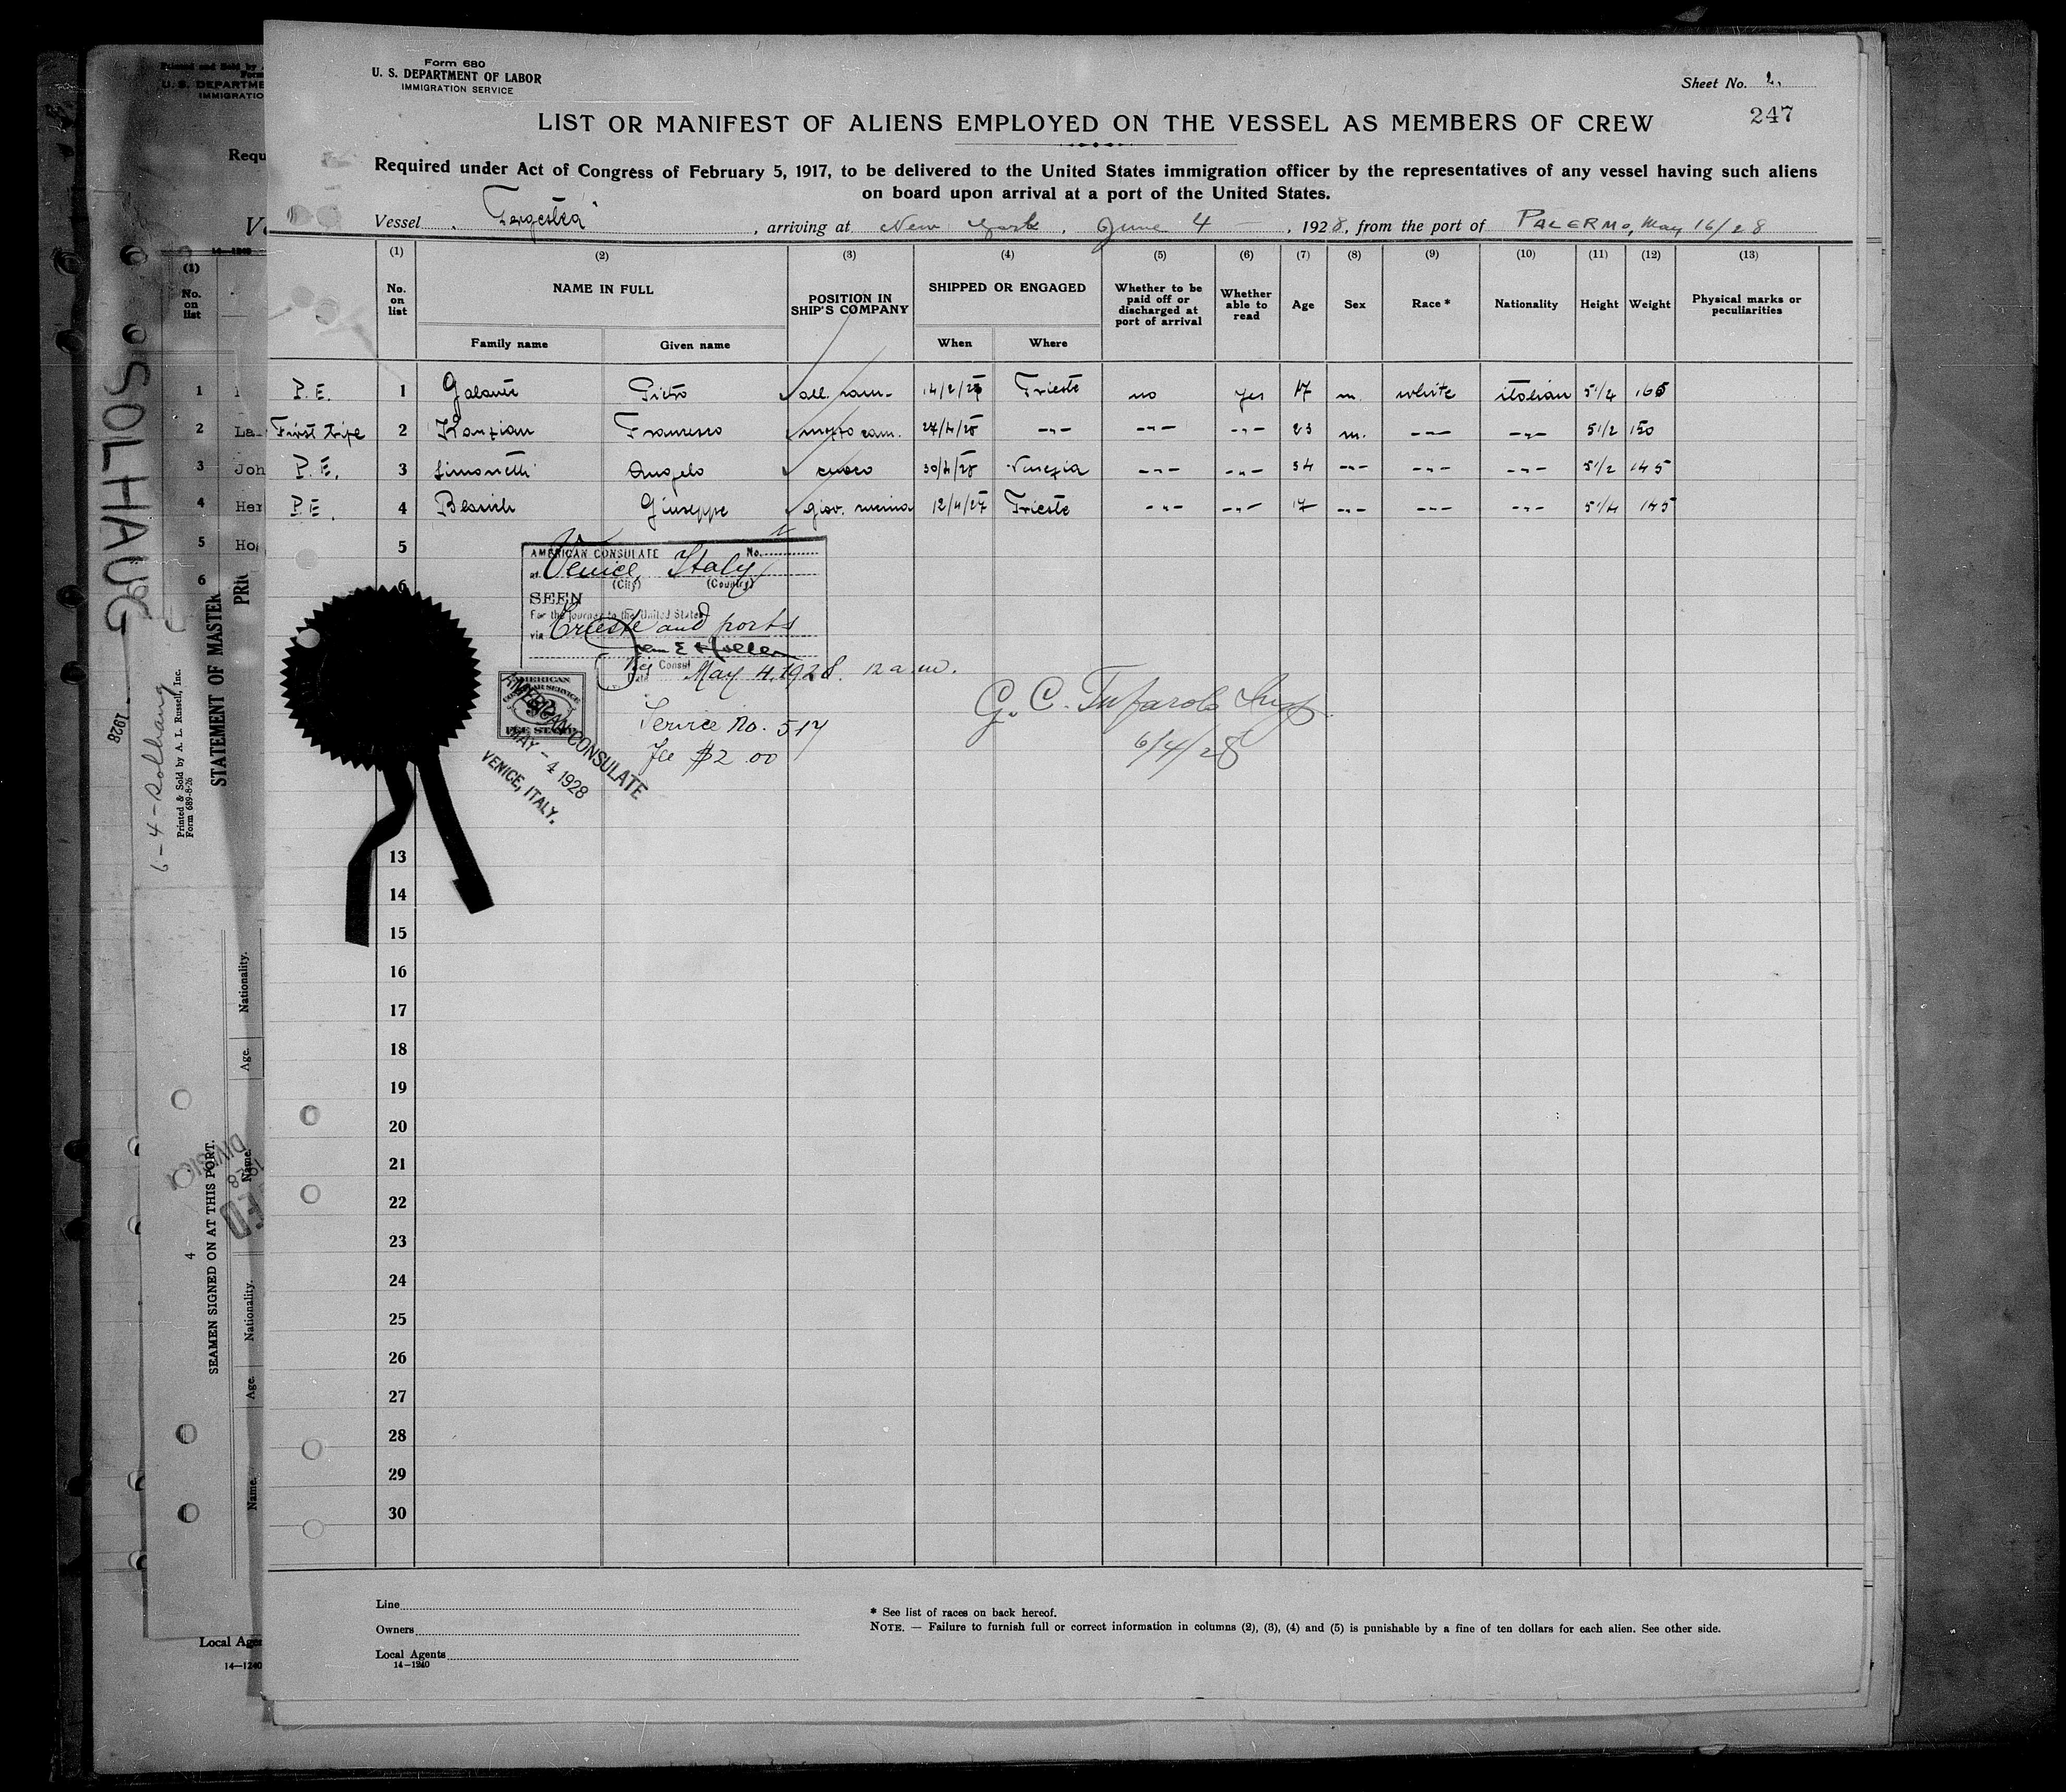 Form 680
U. S. DEPARTMENT OF LABOR
IMMIGRATION SERVICE
Sheet No. 2.
247
LIST OR MANIFEST OF ALIENS EMPLOYED ON THE VESSEL AS MEMBERS OF CREW
Required under Act of Congress of February 5, 1917, to be delivered to the United States immigration officer by the representatives of any vessel having such aliens
on board upon arrival at a port of the United States.
Vessel "Tergestea" , arriving at New York , June 4 , 1928, from the port of PALERMO, May 16/28
(1) (2) (3) (4) (5) (6) (7) (8) (9) (10) (11) (12) (13)
No. on list NAME IN FULL POSITION IN SHIP'S COMPANY SHIPPED OR ENGAGED Whether to be paid off or discharged at port of arrival Whether able to read Age Sex Race * Nationality Height Weight Physical marks or peculiarities
Family name Given name When Where
P.E. 1 Galante Pietro all. cam. 14/2/28 Trieste no yes 17 m. white italian 5 1/4 165
First trip 2 Kanzian Francesco mozzo cam. 27/4/28 -"- -"- -"- 23 m. -"- -"- 5 1/2 150
P.E. 3 Simonetti Angelo cuoco 30/4/28 Venezia -"- -"- 34 -"- -"- -"- 5 1/2 145
P.E. 4 Giuseppe giov. 12/4/27 Trieste -"- -"- 17 -"- -"- -"- 5 1/4 145
5
AMERICAN CONSULATE No.
at Venice, Italy
(City) (Country)
6
SEEN
For the journey to the United States
via Trieste and ports
Consul
Date May 4, 1928. 12 a.m.
AMERICAN
CONSULAR SERVICE
FEE STAMP
Service No. 517
Fee $2.00
AMERICAN CONSULATE
MAY - 4 1928
VENICE, ITALY.
G. C. Tufarolo Insp.
6/4/28
13
14
15
16
17
18
19
20
21
22
23
24
25
26
27
28
29
30
Line
Owners
Local Agents
14-1240
* See list of races on back hereof.
NOTE. — Failure to furnish full or correct information in columns (2), (3), (4) and (5) is punishable by a fine of ten dollars for each alien. See other side.
Printed and Sold by
U. S. DEPARTME
IMMIGRATIO
Requ
14-1240
(1)
No. on list
1
2 La
3 Joh
4 Her
5 Ho
6
SOLHAUG
1928
6-4-Solhaug
Printed & Sold by A. L. Russell, Inc.
Form 689-8-26
STATEMENT OF MASTER
PRI
SEAMEN SIGNED ON AT THIS PORT.
4
Name. Age. Nationality. Name. Age. Nationality.
DIVISIO
Local Agen
14—1240